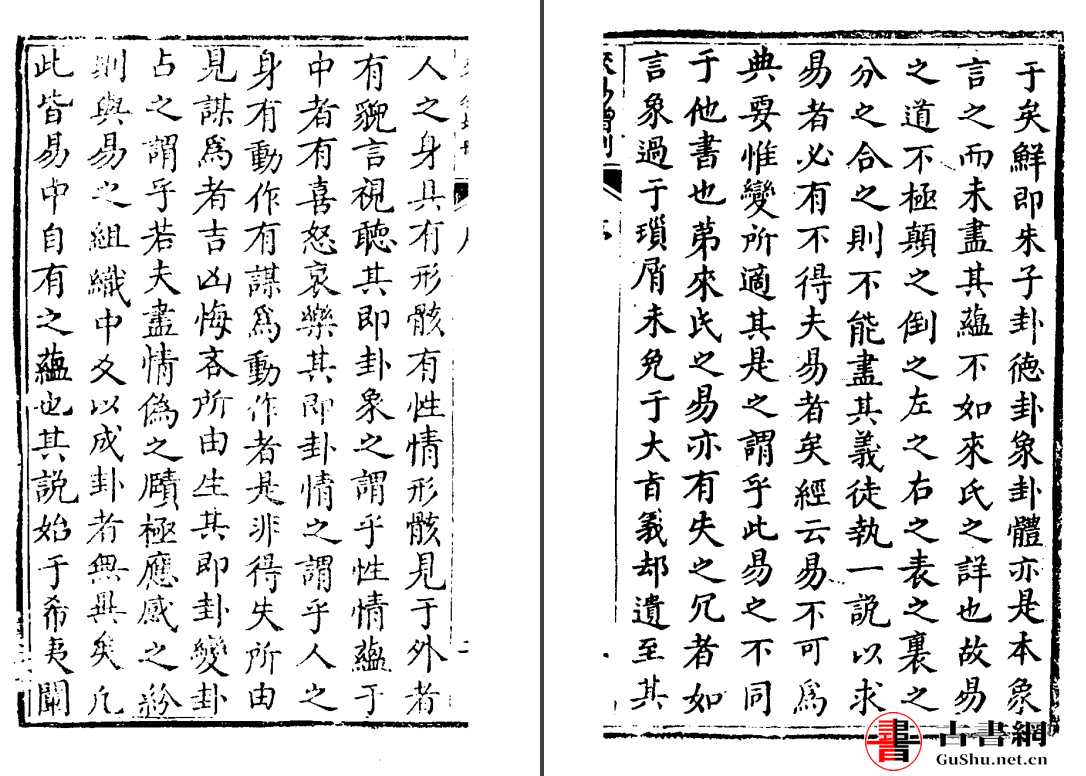 于矣鮮即朱子卦德卦象卦體亦是本象
言之而未盡其蘊不如來氏之詳也故易
之道不極顛之倒之左之右之表之裏之
分之合之則不能盡其義徒執一說以求
易者必有不得夫易者矣經云易不可為
典要惟變所適其是之謂乎此易之不同
于他書也苐來氏之易亦有失之冗者如
言象過于瑣屑未免于大旨義却遺至其
人之身具有形骸有性情形骸見于外者
有貌言視聽其即卦象之謂乎性情蘊于
中者有喜怒哀樂其即卦情之謂乎人之
身有動作有謀為動作者是非得失所由
見謀為者吉凶悔吝所由生其即卦變卦
占之謂乎若夫盡情偽之賾極應感之
則與易之組織中爻以成卦者無異矣凡
此皆易中自有之蘊也其說始于希夷闡
古書網
GuShu.net.cn